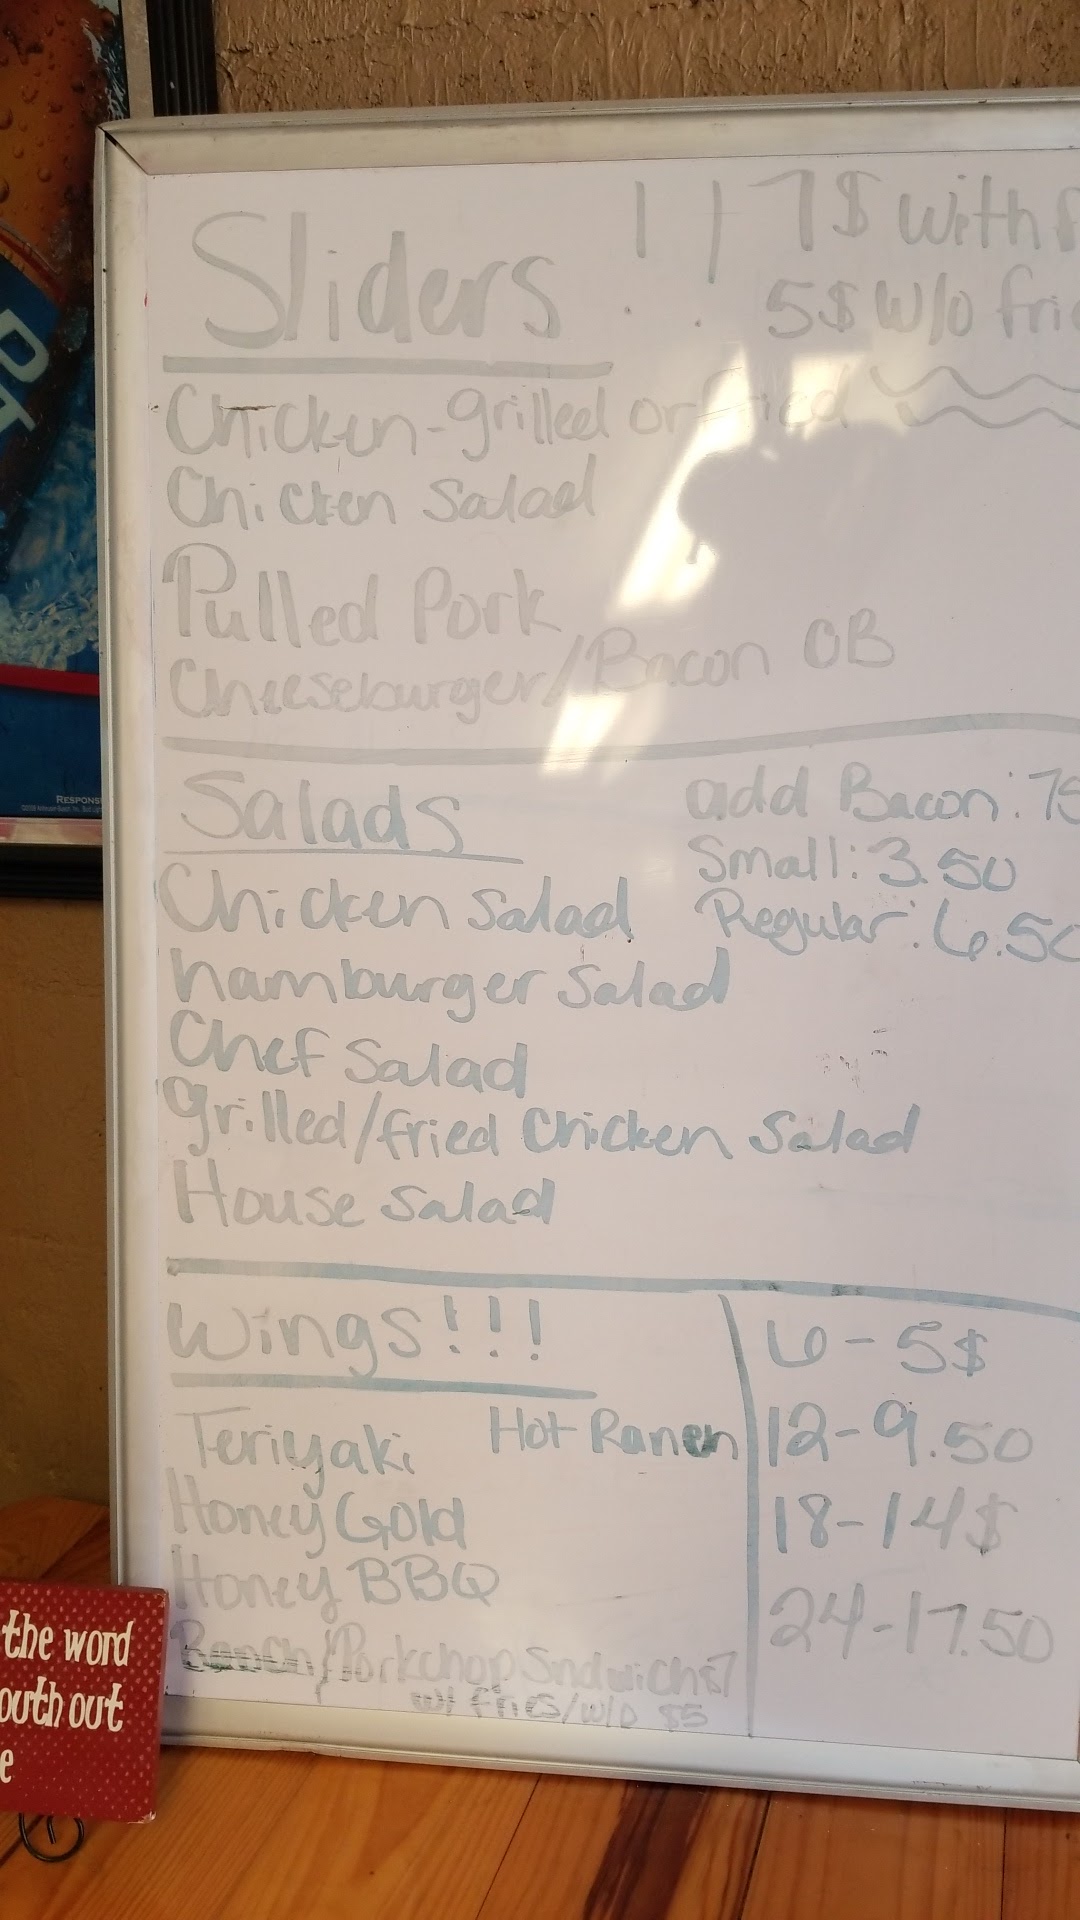 Sliders !! 7$ with f
5$ w/o frie
Chicken-grilled or fried
Chicken Salad
Pulled Pork
Cheeseburger/Bacon CB
Salads
add Bacon: 75
Small: 3.50
Regular: 6.50
Chicken Salad
hamburger Salad
Chef Salad
grilled/fried Chicken Salad
House Salad
Wings!!!
6-5$
Teriyaki Hot Ranch
12-9.50
Honey Gold
18-14$
Honey BBQ
24-17.50
Ranch/Porkchop Sndwich $7
w/ fries/w/o $5
RESPONS
the word
outh out
e